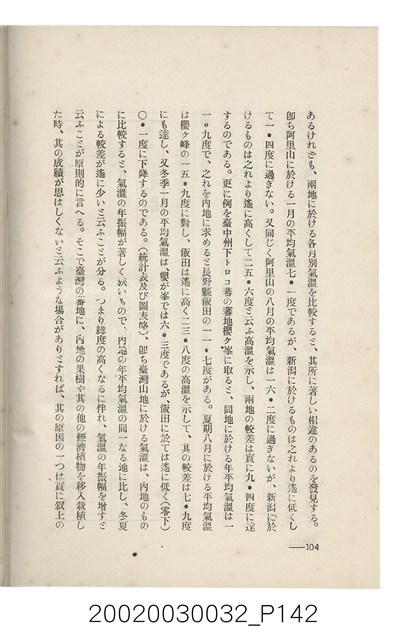 あるけれども、兩地に於ける各月別氣溫を比較すると、其所に著しい相違のあるのを發見する。
卽ち阿里山に於ける一月の平均氣溫七・一度であるが、新潟に於けるものは之れより遙に低くし
て一・四度に過ぎない。又同じく阿里山の八月の平均氣溫は一六・二度に過ぎないが、新潟に於
けるものは之れより遙に高くして二五・六度と云ふ高溫を示し、兩地の較差は實に九・四度に達
するのである。更に例を臺中州下トロコ蕃の蕃地櫻ケ峯に取ると、同地に於ける年平均氣溫は一
一・九度で、之れを內地に求めると長野縣飯田の一一・七度がある。夏期八月に於ける平均氣溫
は櫻ケ峰の一五・九度に對し、飯田は遙に高く二三・八度の高溫を示して、其の較差は七・九度
にも達し、又冬季一月の平均氣溫は、櫻が峯では六・三度であるが、飯田に於ては遙に低く(零下)
〇・一度に下降するのである。(統計表及び圖表略)、卽ち臺灣山地に於ける氣溫は、內地のもの
に比較すると、氣溫の年振幅が著しく狹いもので、內地の年平均氣溫の同一なる地に比し、冬夏
による較差が遙に少いと云ふことが分る。つまり緯度の高くなるに伴れ、氣溫の年振幅を增すと
云ふことが原則的に言へる。そこで臺灣の蕃地に、內地の果樹や其の他の經濟植物を移入栽植し
た時、其の成績が思はしくないと云ふような場合がありとすれば、其の原因の一つは實に叙上の
——104
20020030032_P142